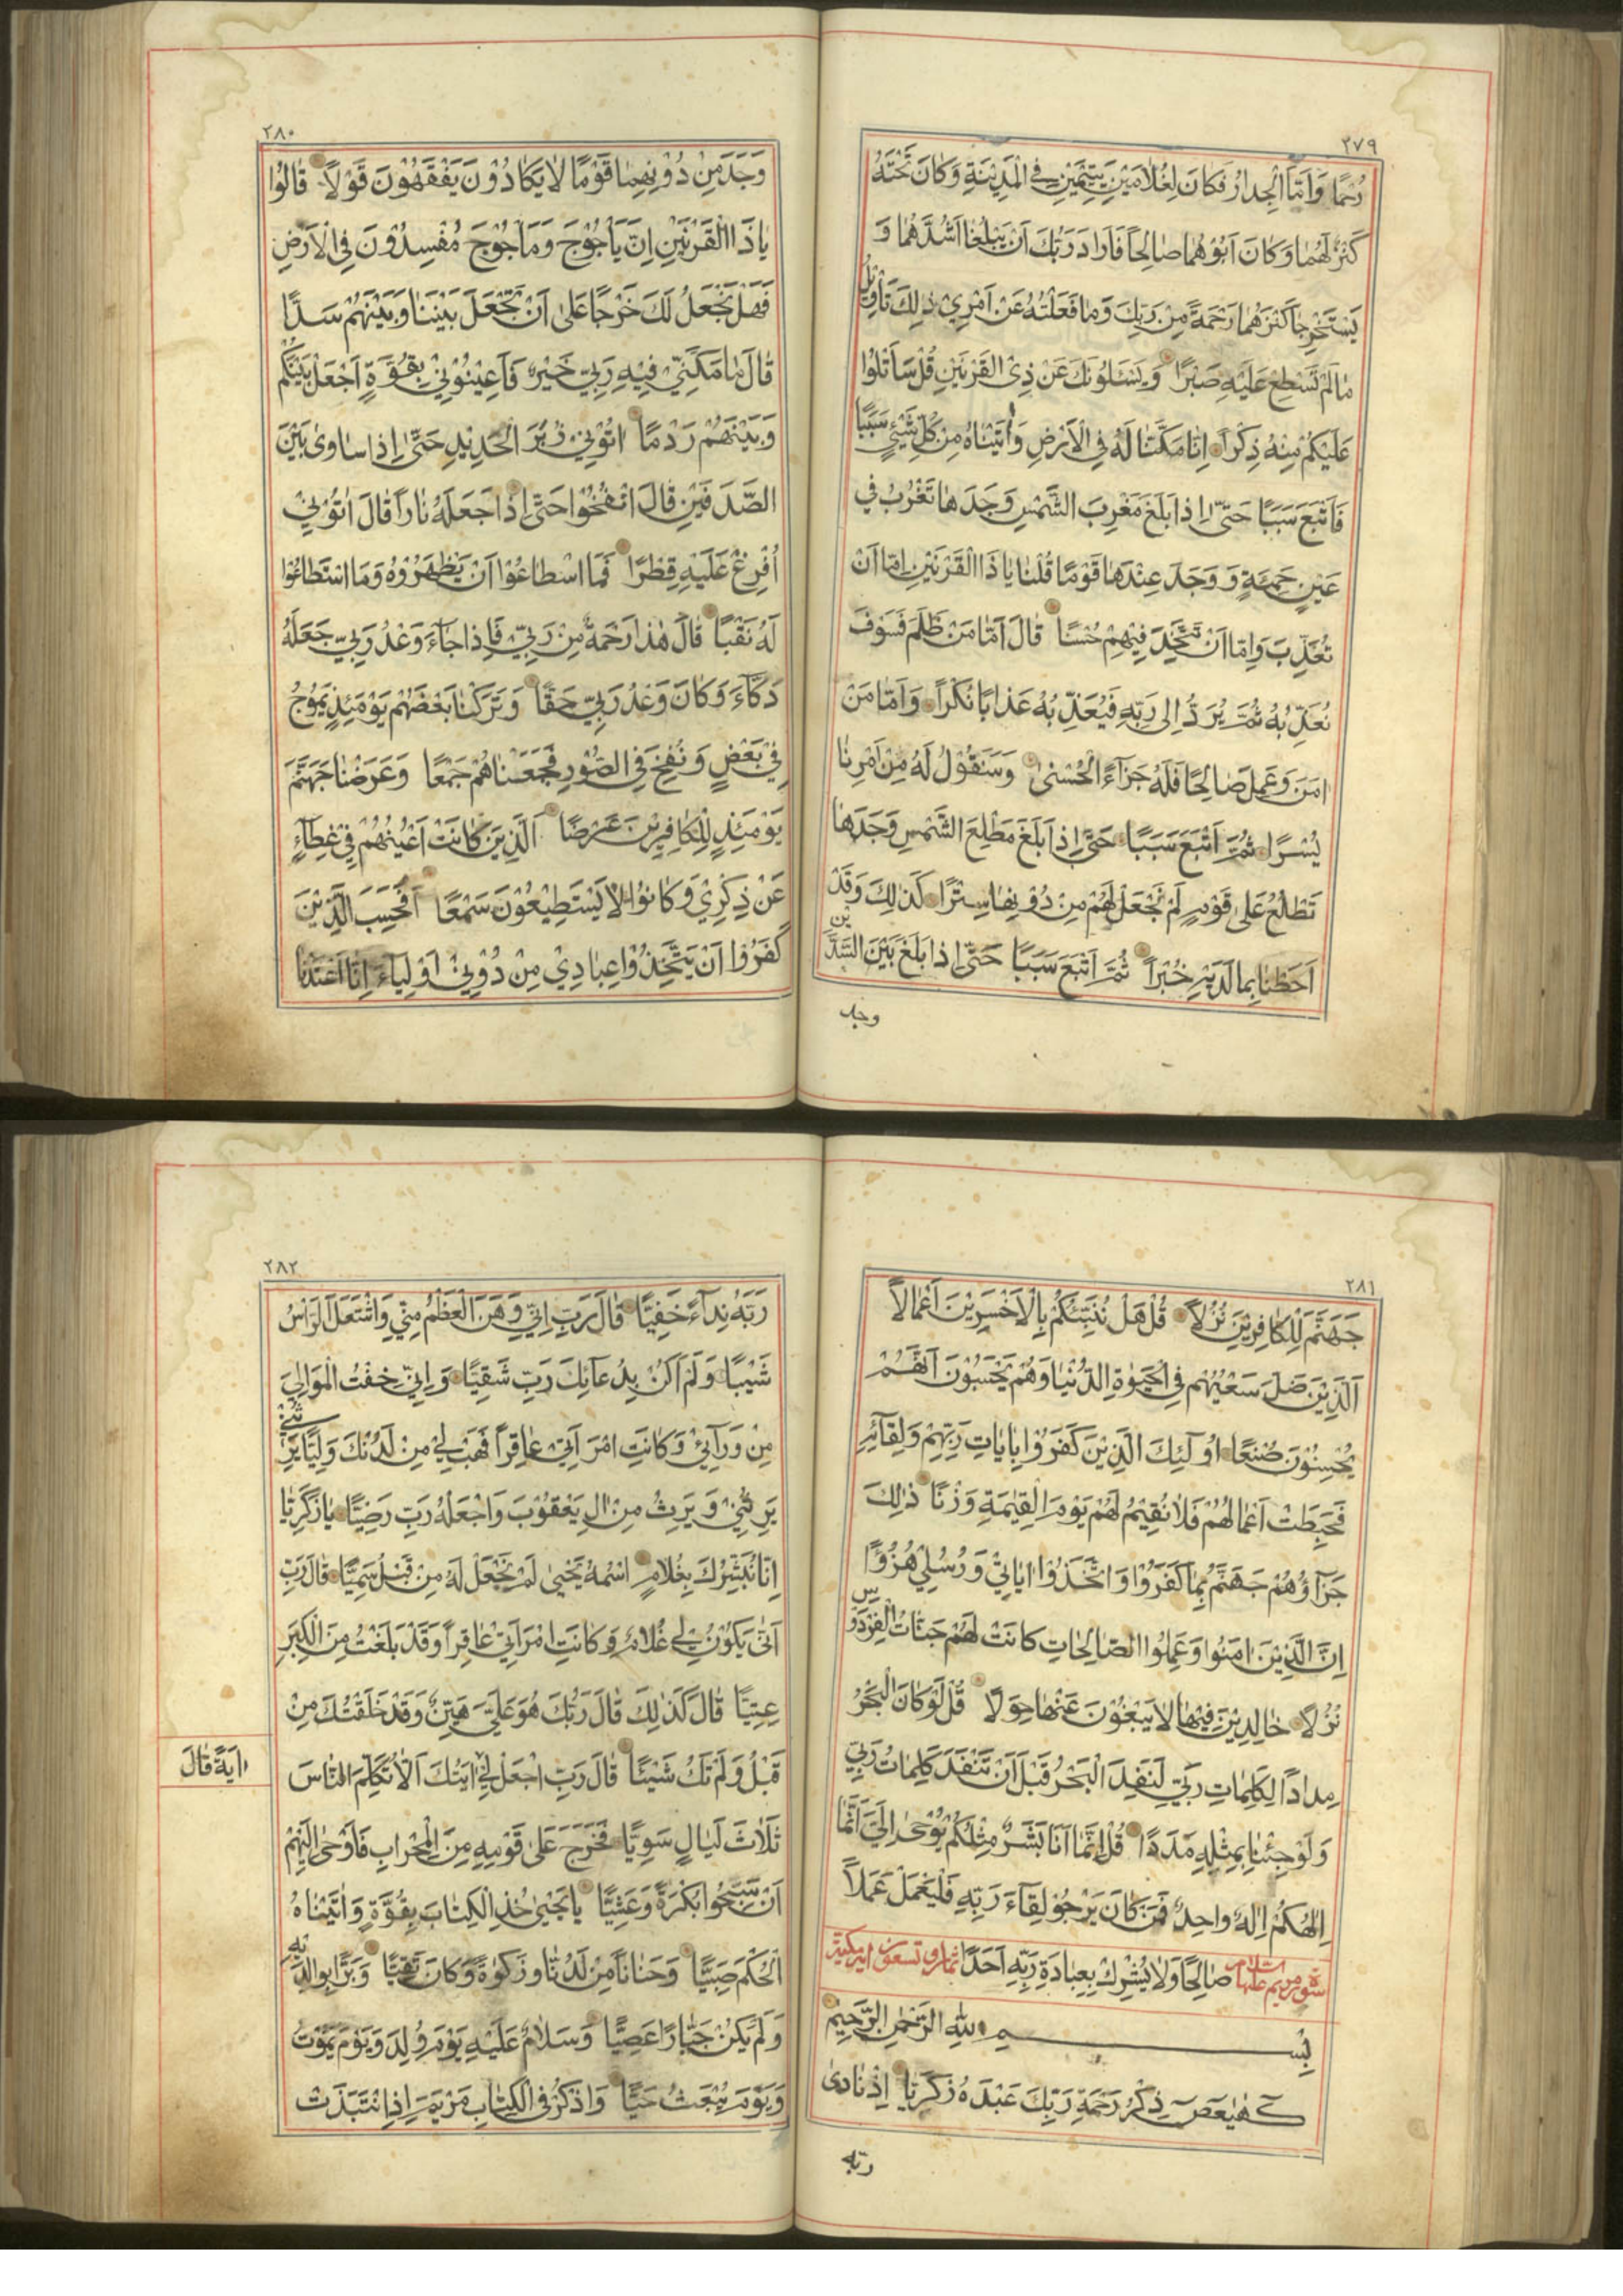 ٢٧٩
رُحْمًا وَاَمَّا الْجِدَارُ فَكَانَ لِغُلَامَيْنِ يَتِيْمَيْنِ فِي الْمَدِيْنَةِ وَكَانَ تَحْتَهُ
كَنْزٌ لَهُمَا وَكَانَ اَبُوْهُمَا صَالِحًا فَاَرَادَ رَبُّكَ اَنْ يَبْلُغَا اَشُدَّهُمَا وَ
يَسْتَخْرِجَا كَنْزَهُمَا رَحْمَةً مِنْ رَبِّكَ وَمَا فَعَلْتُهُ عَنْ اَمْرِيْ ذٰلِكَ تَأْوِيْلُ
مَا لَمْ تَسْطِعْ عَلَيْهِ صَبْرًا وَيَسْئَلُوْنَكَ عَنْ ذِي الْقَرْنَيْنِ قُلْ سَاَتْلُوْا
عَلَيْكُمْ مِنْهُ ذِكْرًا اِنَّا مَكَّنَّا لَهُ فِي الْاَرْضِ وَاٰتَيْنَاهُ مِنْ كُلِّ شَيْئٍ سَبَبًا
فَاَتْبَعَ سَبَبًا حَتّٰى اِذَا بَلَغَ مَغْرِبَ الشَّمْسِ وَجَدَهَا تَغْرُبُ فِي
عَيْنٍ حَمِئَةٍ وَوَجَدَ عِنْدَهَا قَوْمًا قُلْنَا يَا ذَا الْقَرْنَيْنِ اِمَّا اَنْ
تُعَذِّبَ وَاِمَّا اَنْ تَتَّخِذَ فِيْهِمْ حُسْنًا قَالَ اَمَّا مَنْ ظَلَمَ فَسَوْفَ
نُعَذِّبُهُ ثُمَّ يُرَدُّ اِلٰى رَبِّهِ فَيُعَذِّبُهُ عَذَابًا نُكْرًا وَاَمَّا مَنْ
اٰمَنَ وَعَمِلَ صَالِحًا فَلَهُ جَزَآءً الْحُسْنٰى وَسَنَقُوْلُ لَهُ مِنْ اَمْرِنَا
يُسْرًا ثُمَّ اَتْبَعَ سَبَبًا حَتّٰى اِذَا بَلَغَ مَطْلِعَ الشَّمْسِ وَجَدَهَا
تَطْلُعُ عَلٰى قَوْمٍ لَمْ نَجْعَلْ لَهُمْ مِنْ دُوْنِهَا سِتْرًا كَذٰلِكَ وَقَدْ
اَحَطْنَا بِمَا لَدَيْهِ خُبْرًا ثُمَّ اَتْبَعَ سَبَبًا حَتّٰى اِذَا بَلَغَ بَيْنَ السَّدَّيْنِ
وجد
٢٨٠
وَجَدَ مِنْ دُوْنِهِمَا قَوْمًا لَا يَكَادُوْنَ يَفْقَهُوْنَ قَوْلًا قَالُوْا
يَا ذَا الْقَرْنَيْنِ اِنَّ يَأْجُوْجَ وَمَأْجُوْجَ مُفْسِدُوْنَ فِي الْاَرْضِ
فَهَلْ نَجْعَلُ لَكَ خَرْجًا عَلٰى اَنْ تَجْعَلَ بَيْنَنَا وَبَيْنَهُمْ سَدًّا
قَالَ مَا مَكَّنِّيْ فِيْهِ رَبِّيْ خَيْرٌ فَاَعِيْنُوْنِيْ بِقُوَّةٍ اَجْعَلْ بَيْنَكُمْ
وَبَيْنَهُمْ رَدْمًا اٰتُوْنِيْ زُبَرَ الْحَدِيْدِ حَتّٰى اِذَا سَاوٰى بَيْنَ
الصَّدَفَيْنِ قَالَ انْفُخُوْا حَتّٰى اِذَا جَعَلَهُ نَارًا قَالَ اٰتُوْنِيْ
اُفْرِغْ عَلَيْهِ قِطْرًا فَمَا اسْطَاعُوْا اَنْ يَظْهَرُوْهُ وَمَا اسْتَطَاعُوْا
لَهُ نَقْبًا قَالَ هٰذَا رَحْمَةٌ مِنْ رَبِّيْ فَاِذَا جَآءَ وَعْدُ رَبِّيْ جَعَلَهُ
دَكَّآءَ وَكَانَ وَعْدُ رَبِّيْ حَقًّا وَتَرَكْنَا بَعْضَهُمْ يَوْمَئِذٍ يَمُوْجُ
فِيْ بَعْضٍ وَنُفِخَ فِي الصُّوْرِ فَجَمَعْنَاهُمْ جَمْعًا وَعَرَضْنَا جَهَنَّمَ
يَوْمَئِذٍ لِلْكَافِرِيْنَ عَرْضًا اَلَّذِيْنَ كَانَتْ اَعْيُنُهُمْ فِيْ غِطَآءٍ
عَنْ ذِكْرِيْ وَكَانُوْا لَا يَسْتَطِيْعُوْنَ سَمْعًا اَفَحَسِبَ الَّذِيْنَ
كَفَرُوْا اَنْ يَتَّخِذُوْا عِبَادِيْ مِنْ دُوْنِيْ اَوْلِيَآءَ اِنَّا اَعْتَدْنَا
٢٨١
جَهَنَّمَ لِلْكَافِرِيْنَ نُزُلًا قُلْ هَلْ نُنَبِّئُكُمْ بِالْاَخْسَرِيْنَ اَعْمَالًا
اَلَّذِيْنَ ضَلَّ سَعْيُهُمْ فِي الْحَيٰوةِ الدُّنْيَا وَهُمْ يَحْسَبُوْنَ اَنَّهُمْ
يُحْسِنُوْنَ صُنْعًا اُولٰئِكَ الَّذِيْنَ كَفَرُوْا بِاٰيَاتِ رَبِّهِمْ وَلِقَآئِهِ
فَحَبِطَتْ اَعْمَالُهُمْ فَلَا نُقِيْمُ لَهُمْ يَوْمَ الْقِيٰمَةِ وَزْنًا ذٰلِكَ
جَزَآؤُهُمْ جَهَنَّمُ بِمَا كَفَرُوْا وَاتَّخَذُوْا اٰيَاتِيْ وَرُسُلِيْ هُزُوًا
اِنَّ الَّذِيْنَ اٰمَنُوْا وَعَمِلُوا الصَّالِحَاتِ كَانَتْ لَهُمْ جَنَّاتُ الْفِرْدَوْسِ
نُزُلًا خَالِدِيْنَ فِيْهَا لَا يَبْغُوْنَ عَنْهَا حِوَلًا قُلْ لَوْ كَانَ الْبَحْرُ
مِدَادًا لِكَلِمَاتِ رَبِّيْ لَنَفِدَ الْبَحْرُ قَبْلَ اَنْ تَنْفَدَ كَلِمَاتُ رَبِّيْ
وَلَوْ جِئْنَا بِمِثْلِهِ مَدَدًا قُلْ اِنَّمَا اَنَا بَشَرٌ مِثْلُكُمْ يُوْحٰى اِلَيَّ اَنَّمَا
اِلٰهُكُمْ اِلٰهٌ وَاحِدٌ فَمَنْ كَانَ يَرْجُوْ لِقَآءَ رَبِّهِ فَلْيَعْمَلْ عَمَلًا
سورة مريم عليها السلام صَالِحًا وَلَا يُشْرِكْ بِعِبَادَةِ رَبِّهِ اَحَدًا ثمان وتسعون اية مكية
بِسْمِ اللّٰهِ الرَّحْمٰنِ الرَّحِيْمِ
كٓهٰيٰعٓصٓ ذِكْرُ رَحْمَةِ رَبِّكَ عَبْدَهُ زَكَرِيَّا اِذْ نَادٰى
ربه
٢٨٢
رَبَّهُ نِدَآءً خَفِيًّا قَالَ رَبِّ اِنِّيْ وَهَنَ الْعَظْمُ مِنِّيْ وَاشْتَعَلَ الرَّأْسُ
شَيْبًا وَلَمْ اَكُنْ بِدُعَآئِكَ رَبِّ شَقِيًّا وَاِنِّيْ خِفْتُ الْمَوَالِيَ
مِنْ وَرَآئِيْ وَكَانَتِ امْرَاَتِيْ عَاقِرًا فَهَبْ لِيْ مِنْ لَدُنْكَ وَلِيًّا يَرِثُنِيْ
يَرِثُنِيْ وَيَرِثُ مِنْ اٰلِ يَعْقُوْبَ وَاجْعَلْهُ رَبِّ رَضِيًّا يَا زَكَرِيَّا
اِنَّا نُبَشِّرُكَ بِغُلَامٍ اسْمُهُ يَحْيٰى لَمْ نَجْعَلْ لَهُ مِنْ قَبْلُ سَمِيًّا قَالَ رَبِّ
اَنّٰى يَكُوْنُ لِيْ غُلَامٌ وَكَانَتِ امْرَاَتِيْ عَاقِرًا وَقَدْ بَلَغْتُ مِنَ الْكِبَرِ
عِتِيًّا قَالَ كَذٰلِكَ قَالَ رَبُّكَ هُوَ عَلَيَّ هَيِّنٌ وَقَدْ خَلَقْتُكَ مِنْ
قَبْلُ وَلَمْ تَكُ شَيْئًا قَالَ رَبِّ اجْعَلْ لِيْ اٰيَتُكَ اَلَّا تُكَلِّمَ النَّاسَ
اٰيَةً قَالَ
ثَلَاثَ لَيَالٍ سَوِيًّا فَخَرَجَ عَلٰى قَوْمِهِ مِنَ الْمِحْرَابِ فَاَوْحٰى اِلَيْهِمْ
اَنْ سَبِّحُوْا بُكْرَةً وَعَشِيًّا يَا يَحْيٰى خُذِ الْكِتَابَ بِقُوَّةٍ وَاٰتَيْنَاهُ
الْحُكْمَ صَبِيًّا وَحَنَانًا مِنْ لَدُنَّا وَزَكٰوةً وَكَانَ تَقِيًّا وَبَرًّا بِوَالِدَيْهِ
وَلَمْ يَكُنْ جَبَّارًا عَصِيًّا وَسَلَامٌ عَلَيْهِ يَوْمَ وُلِدَ وَيَوْمَ يَمُوْتُ
وَيَوْمَ يُبْعَثُ حَيًّا وَاذْكُرْ فِي الْكِتَابِ مَرْيَمَ اِذِ انْتَبَذَتْ